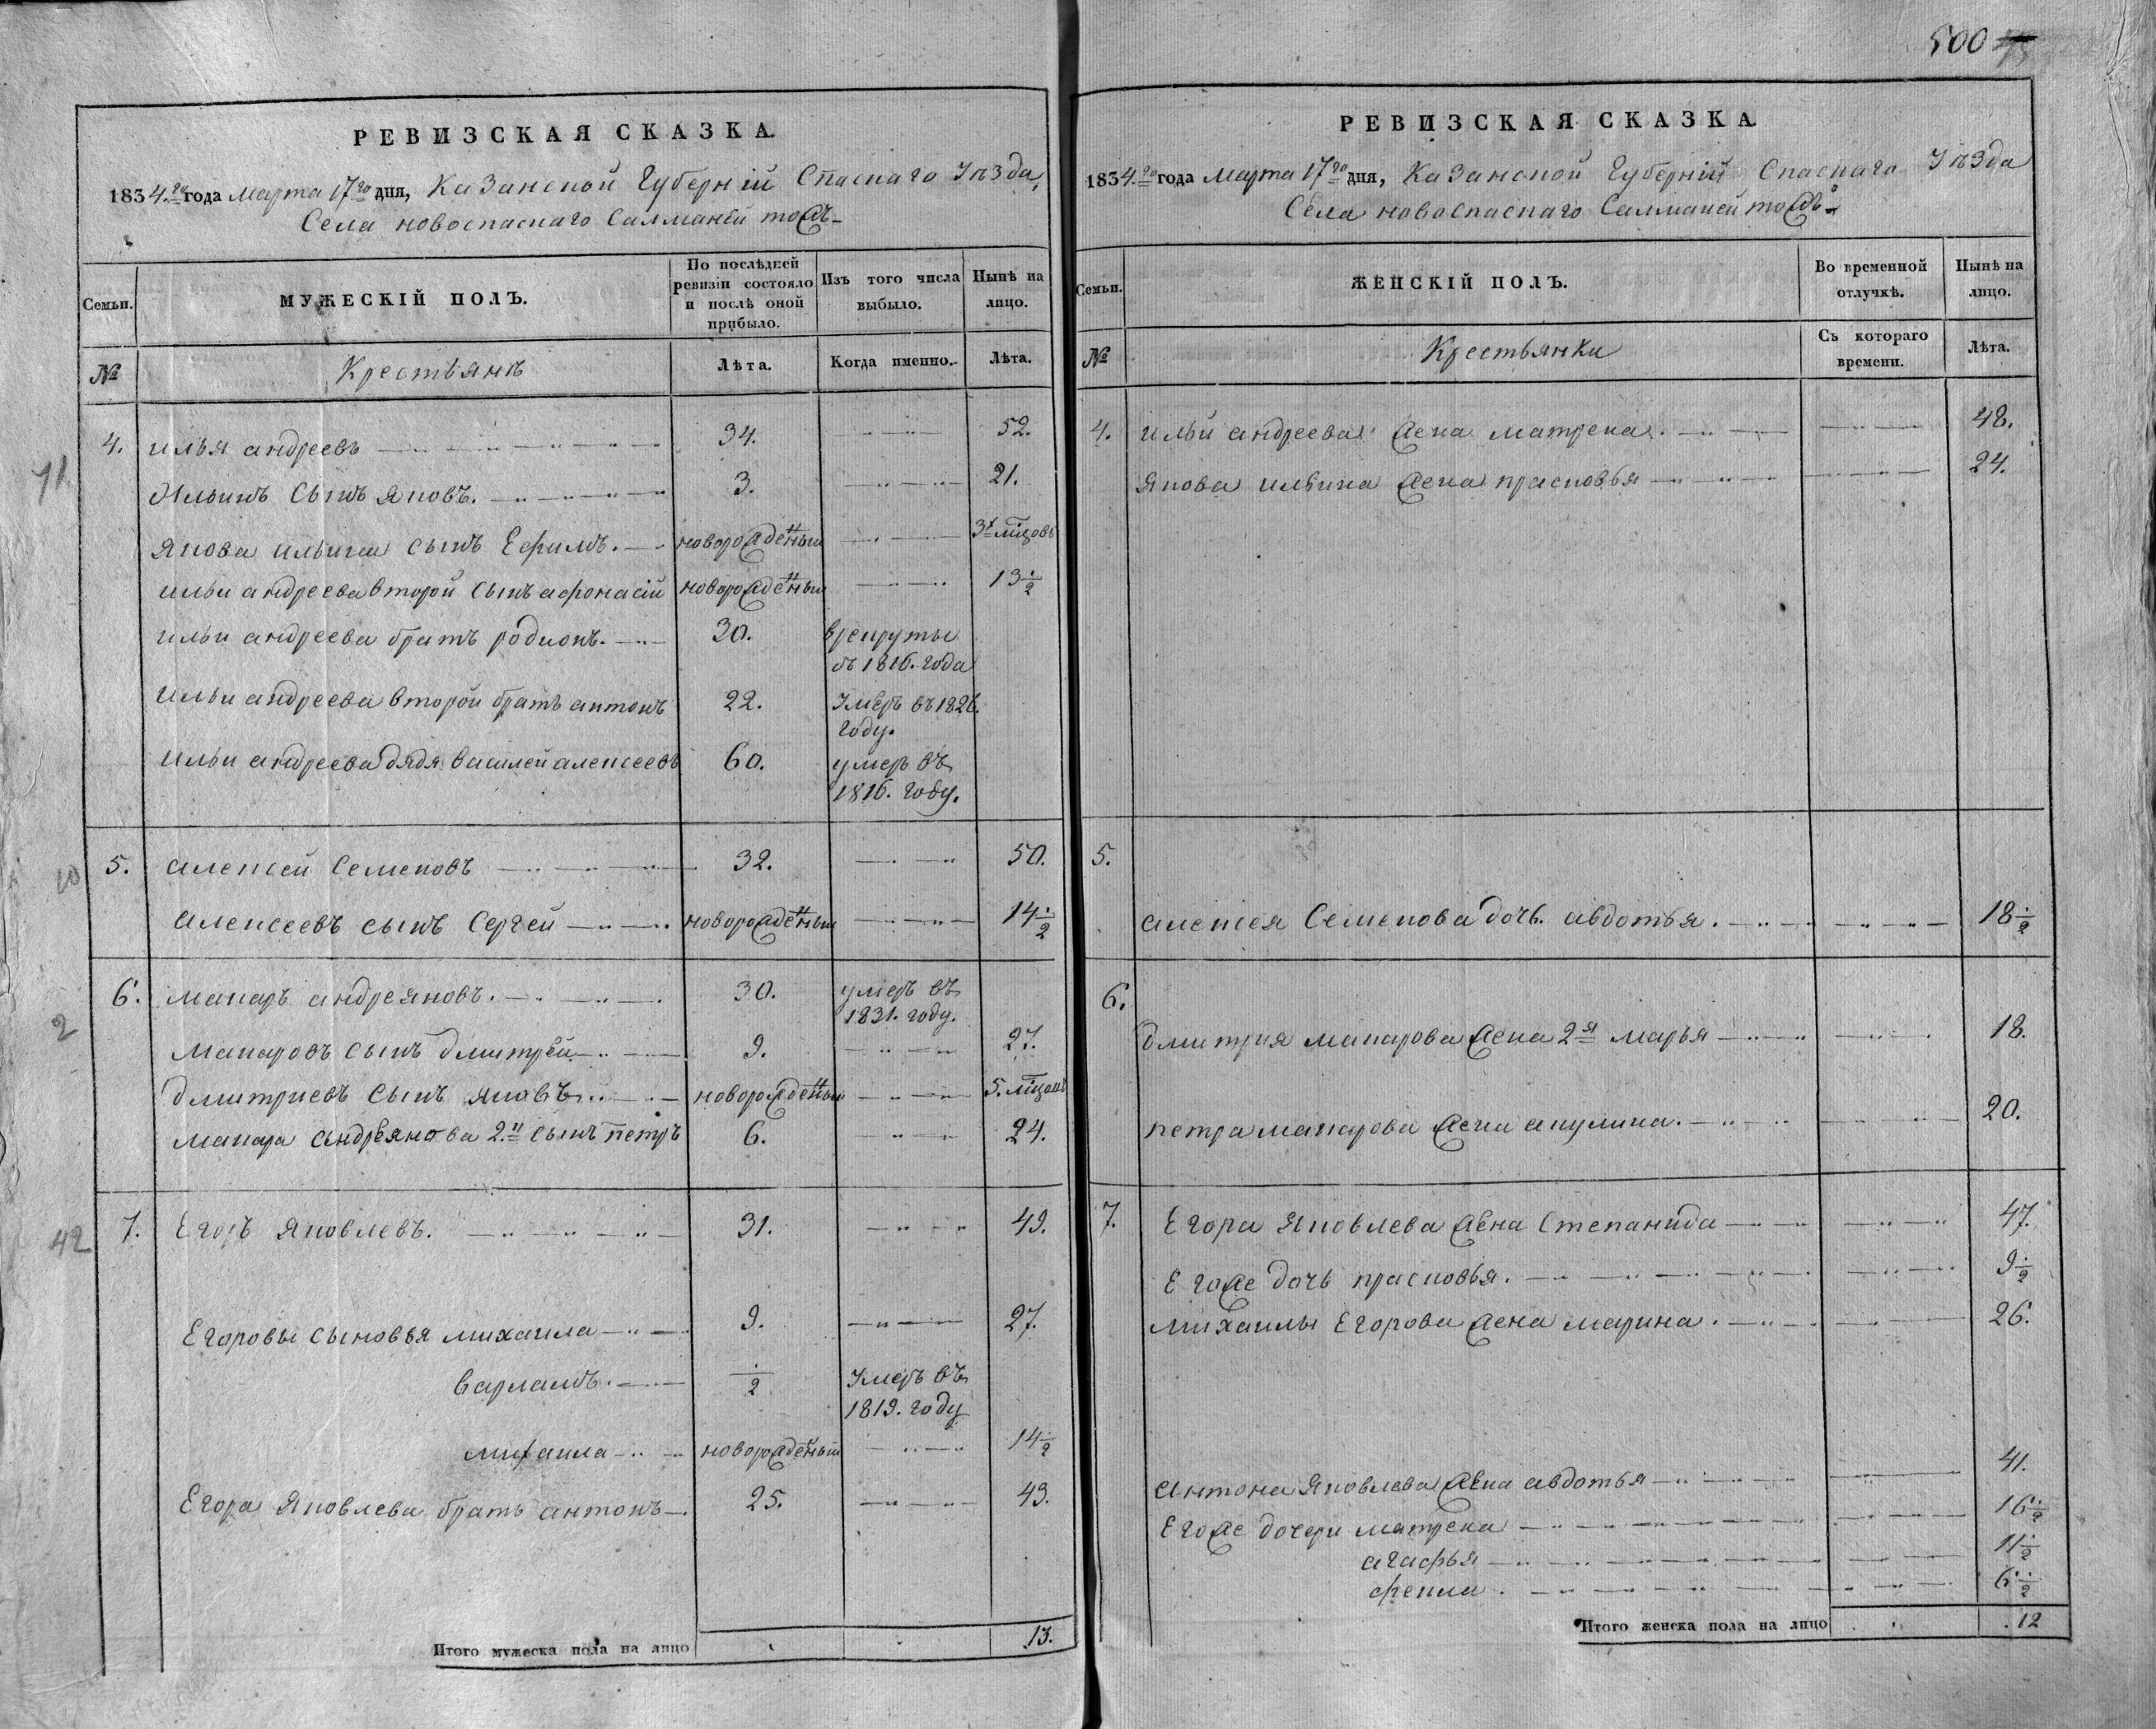 500
РЕВИЗСКАЯ СКАЗКА.
1834.го года марта 17го дня, Казанской Губерніи Спаскаго Уѣзда,
Села новоспаскаго Салманы тожъ
Семьи. МУЖЕСКІЙ ПОЛЪ. По послѣдней ревизіи состояло и послѣ оной прибыло. Изъ того числа выбыло. Нынѣ на лицо.
№ Крестьянъ Лѣта. Когда именно. Лѣта.
71
4. илья андреевъ 34. 52.
Ильинъ сынъ яковъ. 3. 21.
якова ильина сынъ Ефимъ. новорожденный 3х мцовъ
ильи андреева второй сынъ афонасій новорожденный 13 1/2
ильи андреева братъ родионъ. 30. врекруты
съ 1816. года
ильи андреева второй братъ антонъ 22. Умеръ въ 1826.
году.
ильи андреева дядя василей алексеевъ 60. умеръ въ
1816. году.
10
5. алексей Семеновъ 32. 50.
алексеевъ сынъ Сергей новорожденный 14 1/2
2
6. макаръ андреяновъ. 30. умеръ въ
1831. году.
макаровъ сынъ дмитрей 9. 27.
дмитриевъ сынъ яковъ новорожденный 5. мцовъ
макара андреянова 2.й сынъ петръ 6. 24.
42
7. Егоръ Яковлевъ. 31. 49.
Егоровы сыновья михаила 9. 27.
варламъ. 1/2 Умеръ въ
1819. году
михаила новорожденный 14 1/2
Егора Яковлева братъ антонъ 25. 43.
Итого мужеска пола на лицо 13.
РЕВИЗСКАЯ СКАЗКА.
1834.го года марта 17го дня, Казанской Губерніи Спаскаго Уѣзда
Села новоспаскаго Салманы тожъ
Семьи. ЖЕНСКІЙ ПОЛЪ. Во временной отлучкѣ. Нынѣ на лицо.
№ Крестьянки Съ котораго времени. Лѣта.
4. ильи андреева жена матрена. 48.
якова ильина жена прасковья 24.
5.
алексея Семенова дочь авдотья. 18 1/2
6.
дмитрия макарова жена 2я марья 18.
петра макарова жена акулина. 20.
7. Егора Яковлева жена Степанида 47.
Егоже дочь прасковья. 9 1/2
михаилы Егорова жена марина. 26.
антона Яковлева жена авдотья 41.
Егоже дочери матрена 16 1/2
агафья 11 1/2
фекла. 6 1/2
Итого женска пола на лицо 12